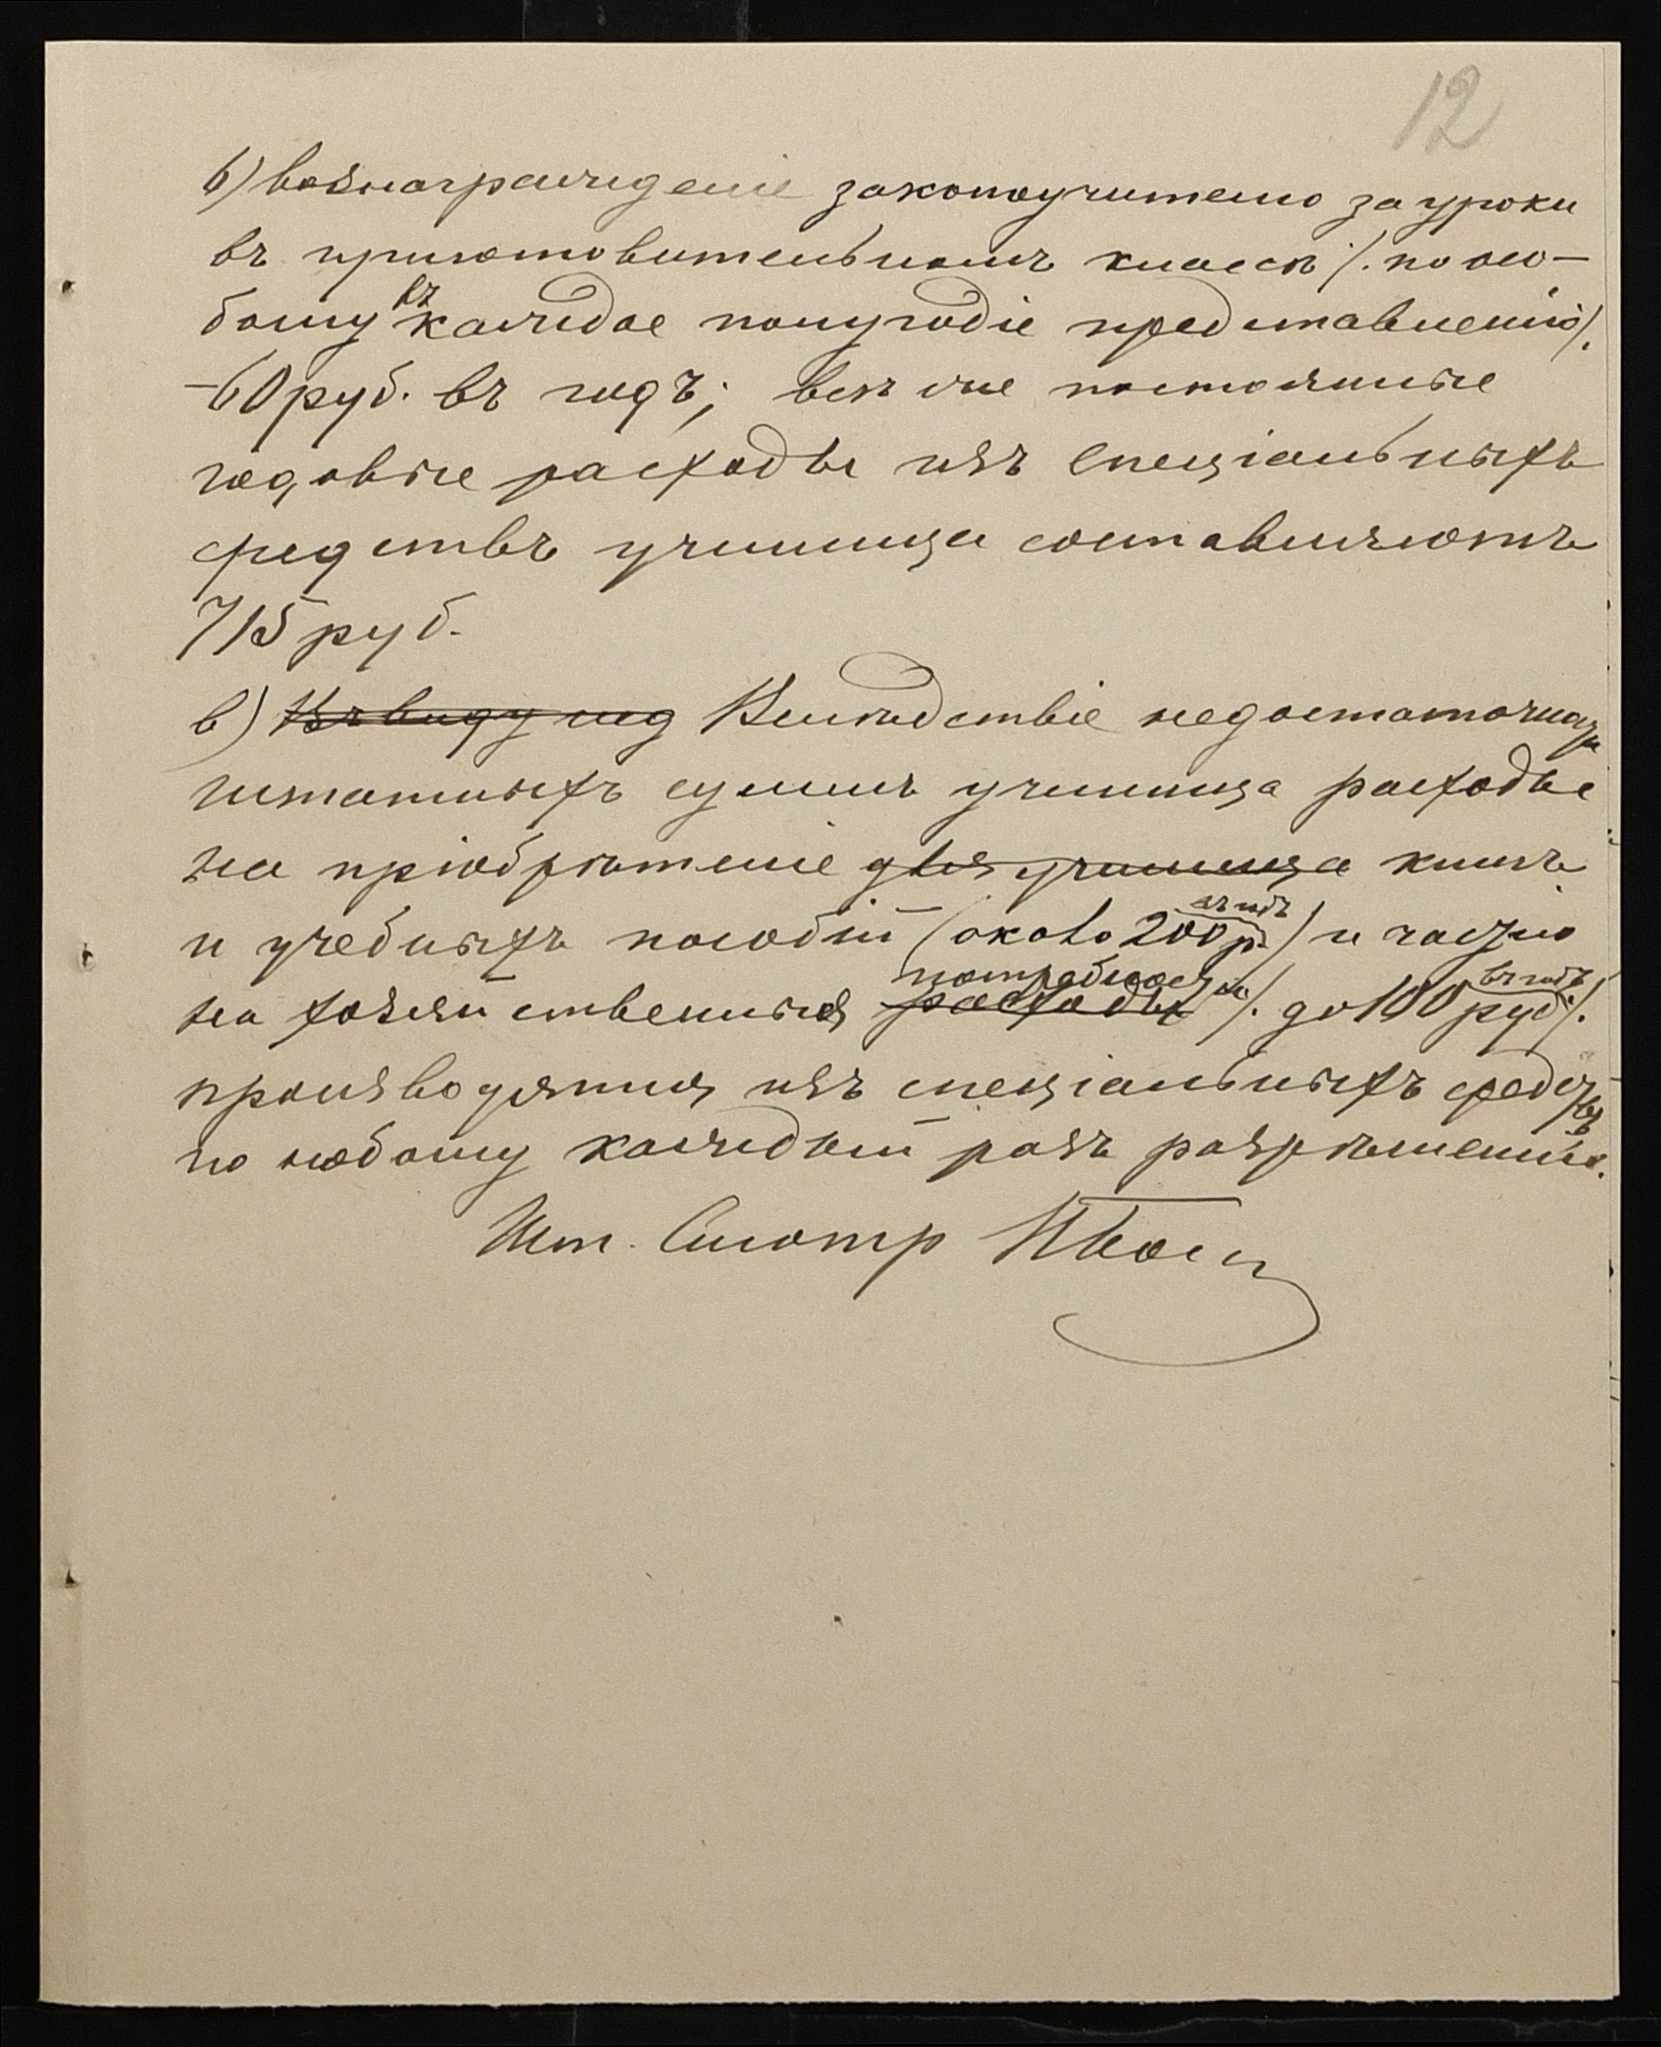 12
б) вознагражденіе законоучителю за уроки
въ приготовительномъ классѣ /. по осо-
бому въ каждое полугодіе представленію /.
- 60 руб. въ годъ; всѣ же постоянные
годовые расходы изъ спеціальныхъ
средствъ училища составляютъ
715 руб.
в) Въ виду нед Вслѣдствіе недостаточн.
штатныхъ суммъ училища расходы
на пріобрѣтеніе для училища книгъ
и учебныхъ пособій (около 200 р. въ годъ) и частію
на хозяйственныя расходы потребности /. до 100 руб. въ годъ /.
производятся изъ спеціальныхъ средствъ
по особому каждый разъ разрѣшенію.
Шт. Смотр